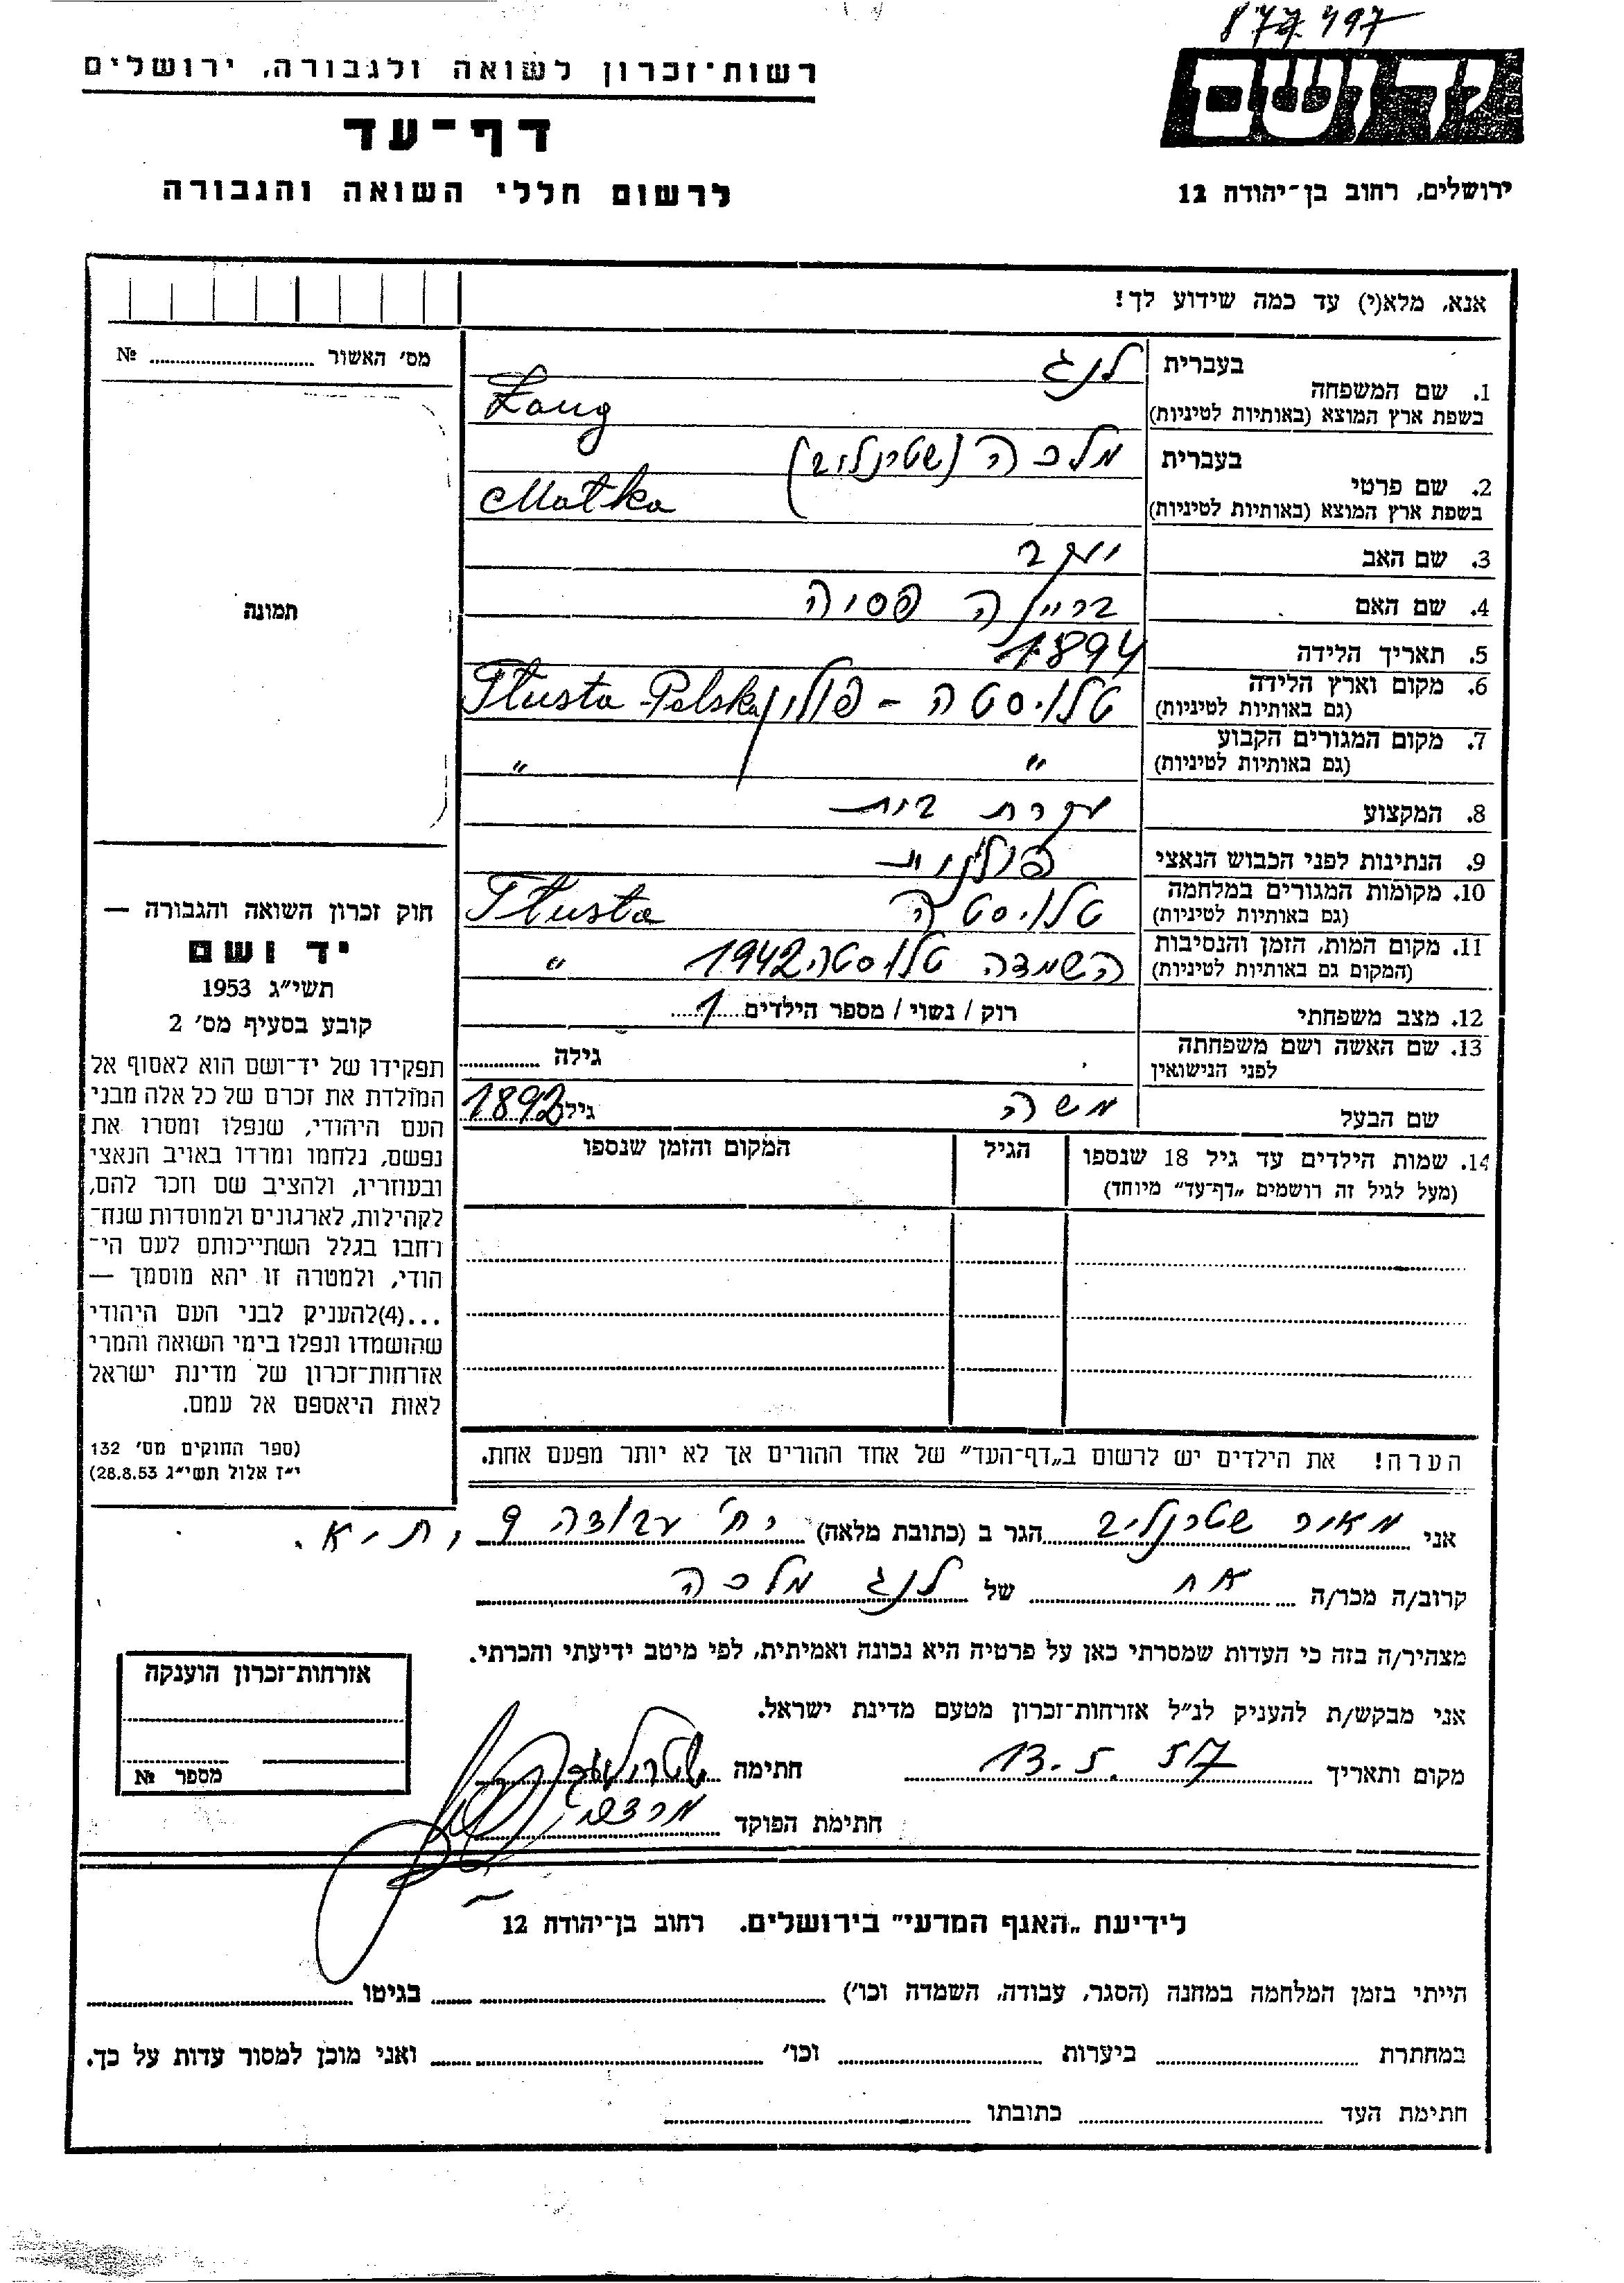 877497
רשות־זכרון לשואה ולגבורה, ירושלים
יד ושם
דף־עד
לרשום חללי השואה והגבורה
ירושלים, רחוב בן־יהודה 12
אנא, מלא(י) עד כמה שידוע לך!
מס' האשור ........ №
תמונה
1. שם המשפחה בעברית לנג
בשפת ארץ המוצא (באותיות לטיניות) Lang
2. שם פרטי בעברית מלכה (שטרנליב)
בשפת ארץ המוצא (באותיות לטיניות) Malka
3. שם האב יעקב
4. שם האם בריינה פסיה
5. תאריך הלידה 1894
6. מקום וארץ הלידה טלוסטה - פולין Tłusta Polska
(גם באותיות לטיניות)
7. מקום המגורים הקבוע " "
(גם באותיות לטיניות)
8. המקצוע עקרת בית
9. הנתינות לפני הכבוש הנאצי פולנית
10. מקומות המגורים במלחמה טלוסטה Tłusta
(גם באותיות לטיניות)
11. מקום המות, הזמן והנסיבות השמדה טלוסטה 1942 "
(המקום גם באותיות לטיניות)
12. מצב משפחתי רוק / נשוי / מספר הילדים 1
13. שם האשה ושם משפחתה גילה ........
לפני הנישואין
שם הבעל משה גילו 1892
14. שמות הילדים עד גיל 18 שנספו הגיל המקום והזמן שנספו
(מעל לגיל זה רושמים „דף־עד" מיוחד)
הערה! את הילדים יש לרשום ב„דף־העד" של אחד ההורים אך לא יותר מפעם אחת.
חוק זכרון השואה והגבורה —
יד ושם
תשי"ג 1953
קובע בסעיף מס' 2
תפקידו של יד־ושם הוא לאסוף אל
המולדת את זכרם של כל אלה מבני
העם היהודי, שנפלו ומסרו את
נפשם, נלחמו ומרדו באויב הנאצי
ובעוזריו, ולהציב שם וזכר להם,
לקהילות, לארגונים ולמוסדות שנח־
רחבו בגלל השתייכותם לעם הי־
הודי, ולמטרה זו יהא מוסמך —
...(4)להעניק לבני העם היהודי
שהושמדו ונפלו בימי השואה והמרי
אזרחות־זכרון של מדינת ישראל
לאות היאספם אל עמם.
(ספר החוקים מס' 132
י"ז אלול תשי"ג 28.8.53)
אני מאיר שטרנליב הגר ב (כתובת מלאה) רח' עבודה 9, ת"א.
קרוב/ה מכר/ה אח של לנג מלכה
מצהיר/ה בזה כי העדות שמסרתי כאן על פרטיה היא נכונה ואמיתית, לפי מיטב ידיעתי והכרתי.
אני מבקש/ת להעניק לנ"ל אזרחות־זכרון מטעם מדינת ישראל.
מקום ותאריך 13.5.57 חתימה שטרנליב
חתימת הפוקד
אזרחות־זכרון הוענקה
מספר №
לידיעת „האגף המדעי" בירושלים. רחוב בן־יהודה 12
הייתי בזמן המלחמה במחנה (הסגר, עבודה, השמדה וכו') ........ בגיטו ........
במחתרת ........ ביערות ........ וכו' ........ ואני מוכן למסור עדות על כך.
חתימת העד ........ כתובתו ........